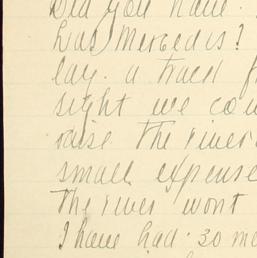 Did you have
was Mercedis?
lay. a tract f
sight we cou
raise the river
small expense
the river wont
I have had. some